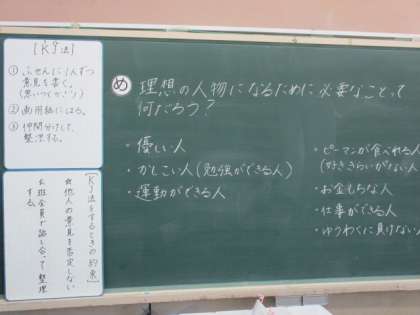 [KJ法]
① ふせんに1人ずつ
意見を書く。
(思いつくかぎり)
② 画用紙にはる。
③ 仲間分けして、
整理する。
[KJ法をするときの約束]
☆他人の意見を否定しない
☆班全員で話し合って整理
する。
め 理想の人物になるために必要なことって
何だろう?
・優しい人
・かしこい人(勉強ができる人)
・運動ができる人
・ピーマンが食べれる人
(好ききらいがない人
・お金もちな人
・仕事ができる人
・ゆうわくに負けない人